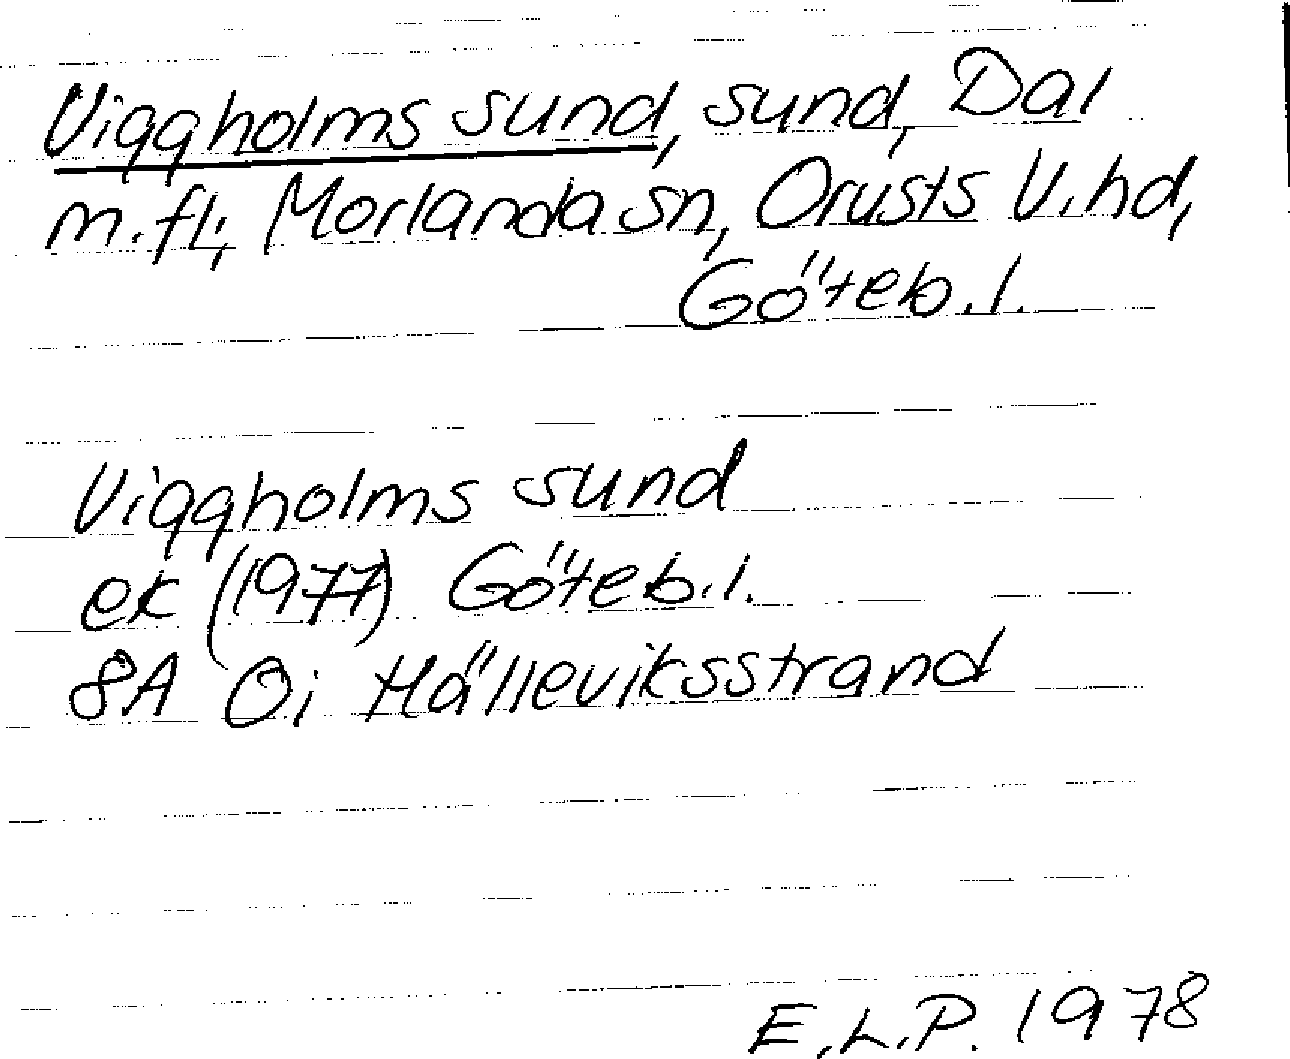 Viggholms sund, sund, Dal
m.fl., Morlanda sn, Orusts V. hd,
Göteb. l.
Viggholms sund
ek (1977) Göteb. l.
8A 0i Hälleviksstrand
E.L.P. 1978